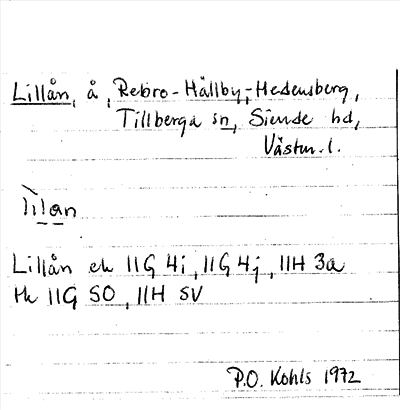 Lillån, å, Rebro-Hällby-Hedensberg,
Tillberga sn, Siende hd,
Västm. l.
lilan
Lillån ek 11G 4i, 11G 4j, 11H 3a
tk 11G SO, 11H SV
P.O. Kohls 1972